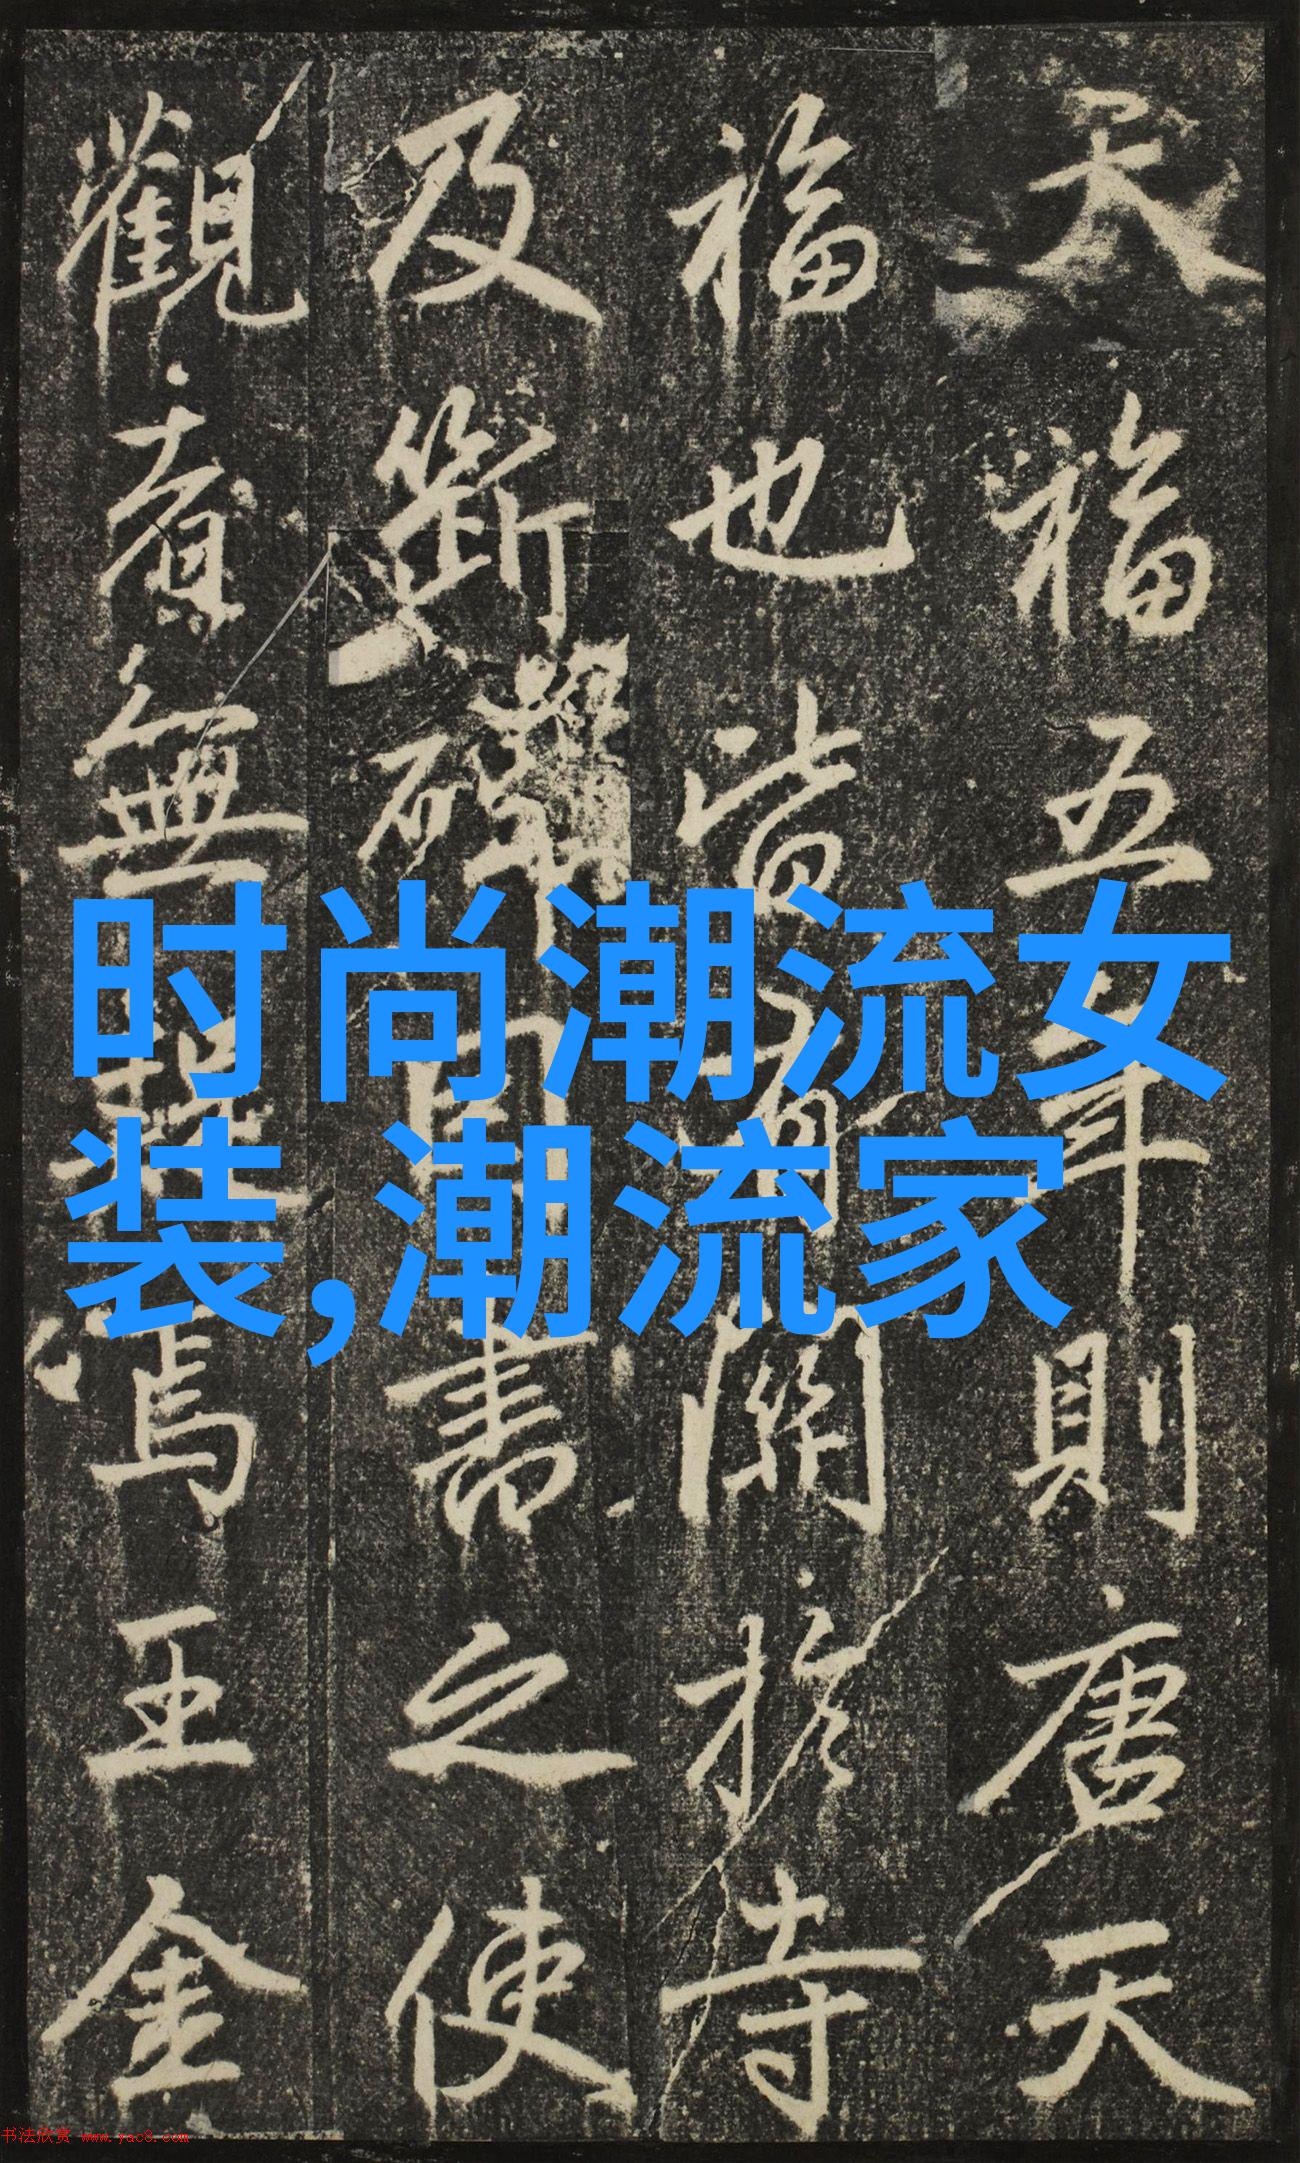 天福五年則唐天
福也皆有關於寺
及斷碑 書之使
觀者無 焉王金
时尚潮流女
装,潮流家
书法欣赏 www.yac8.com